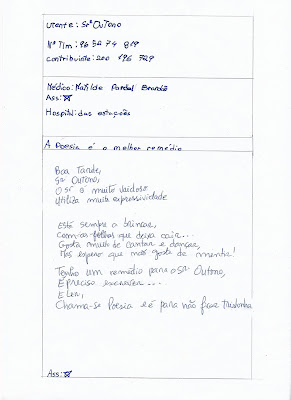 Utente: Srº Outono
Nº Tlm: 96 52 74 819
contribuinte: 200 196 729
Médico: Matilde Pardal Brandão
Ass:
Hospital: das estações
A Poesia é o melhor remédio
Boa Tarde,
Sr Outono,
O Sr é muito vaidoso
Utiliza muita expressividade
Está sempre a brincar,
Com as folhas que deixa cair...
Gosta muito de cantar e dançar,
Mas espero que não goste de mentir!
Tenho um remédio para o Sr Outono,
É preciso escrever...
E ler,
Chama-se Poesia e é para não ficar Tristonho
Ass: